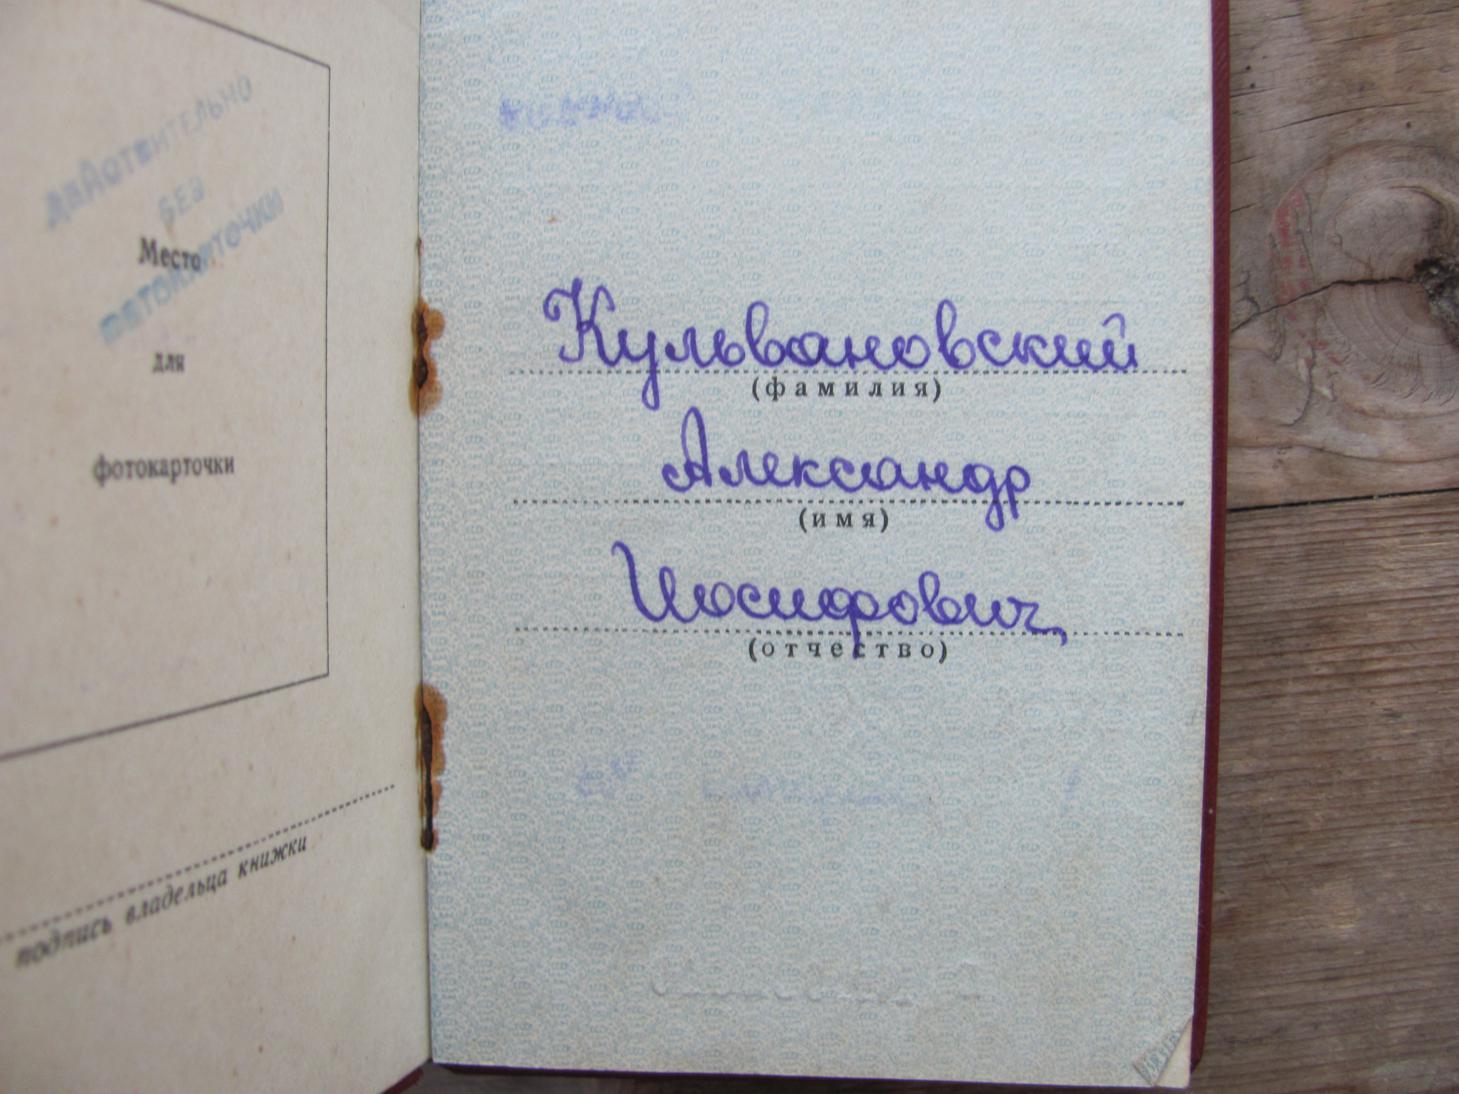 ДЕЙСТВИТЕЛЬНО
БЕЗ
ФОТОКАРТОЧКИ
Место
для
фотокарточки
подпись владельца книжки
Кульвановский
(фамилия)
Александр
(имя)
Иосифович
(отчество)